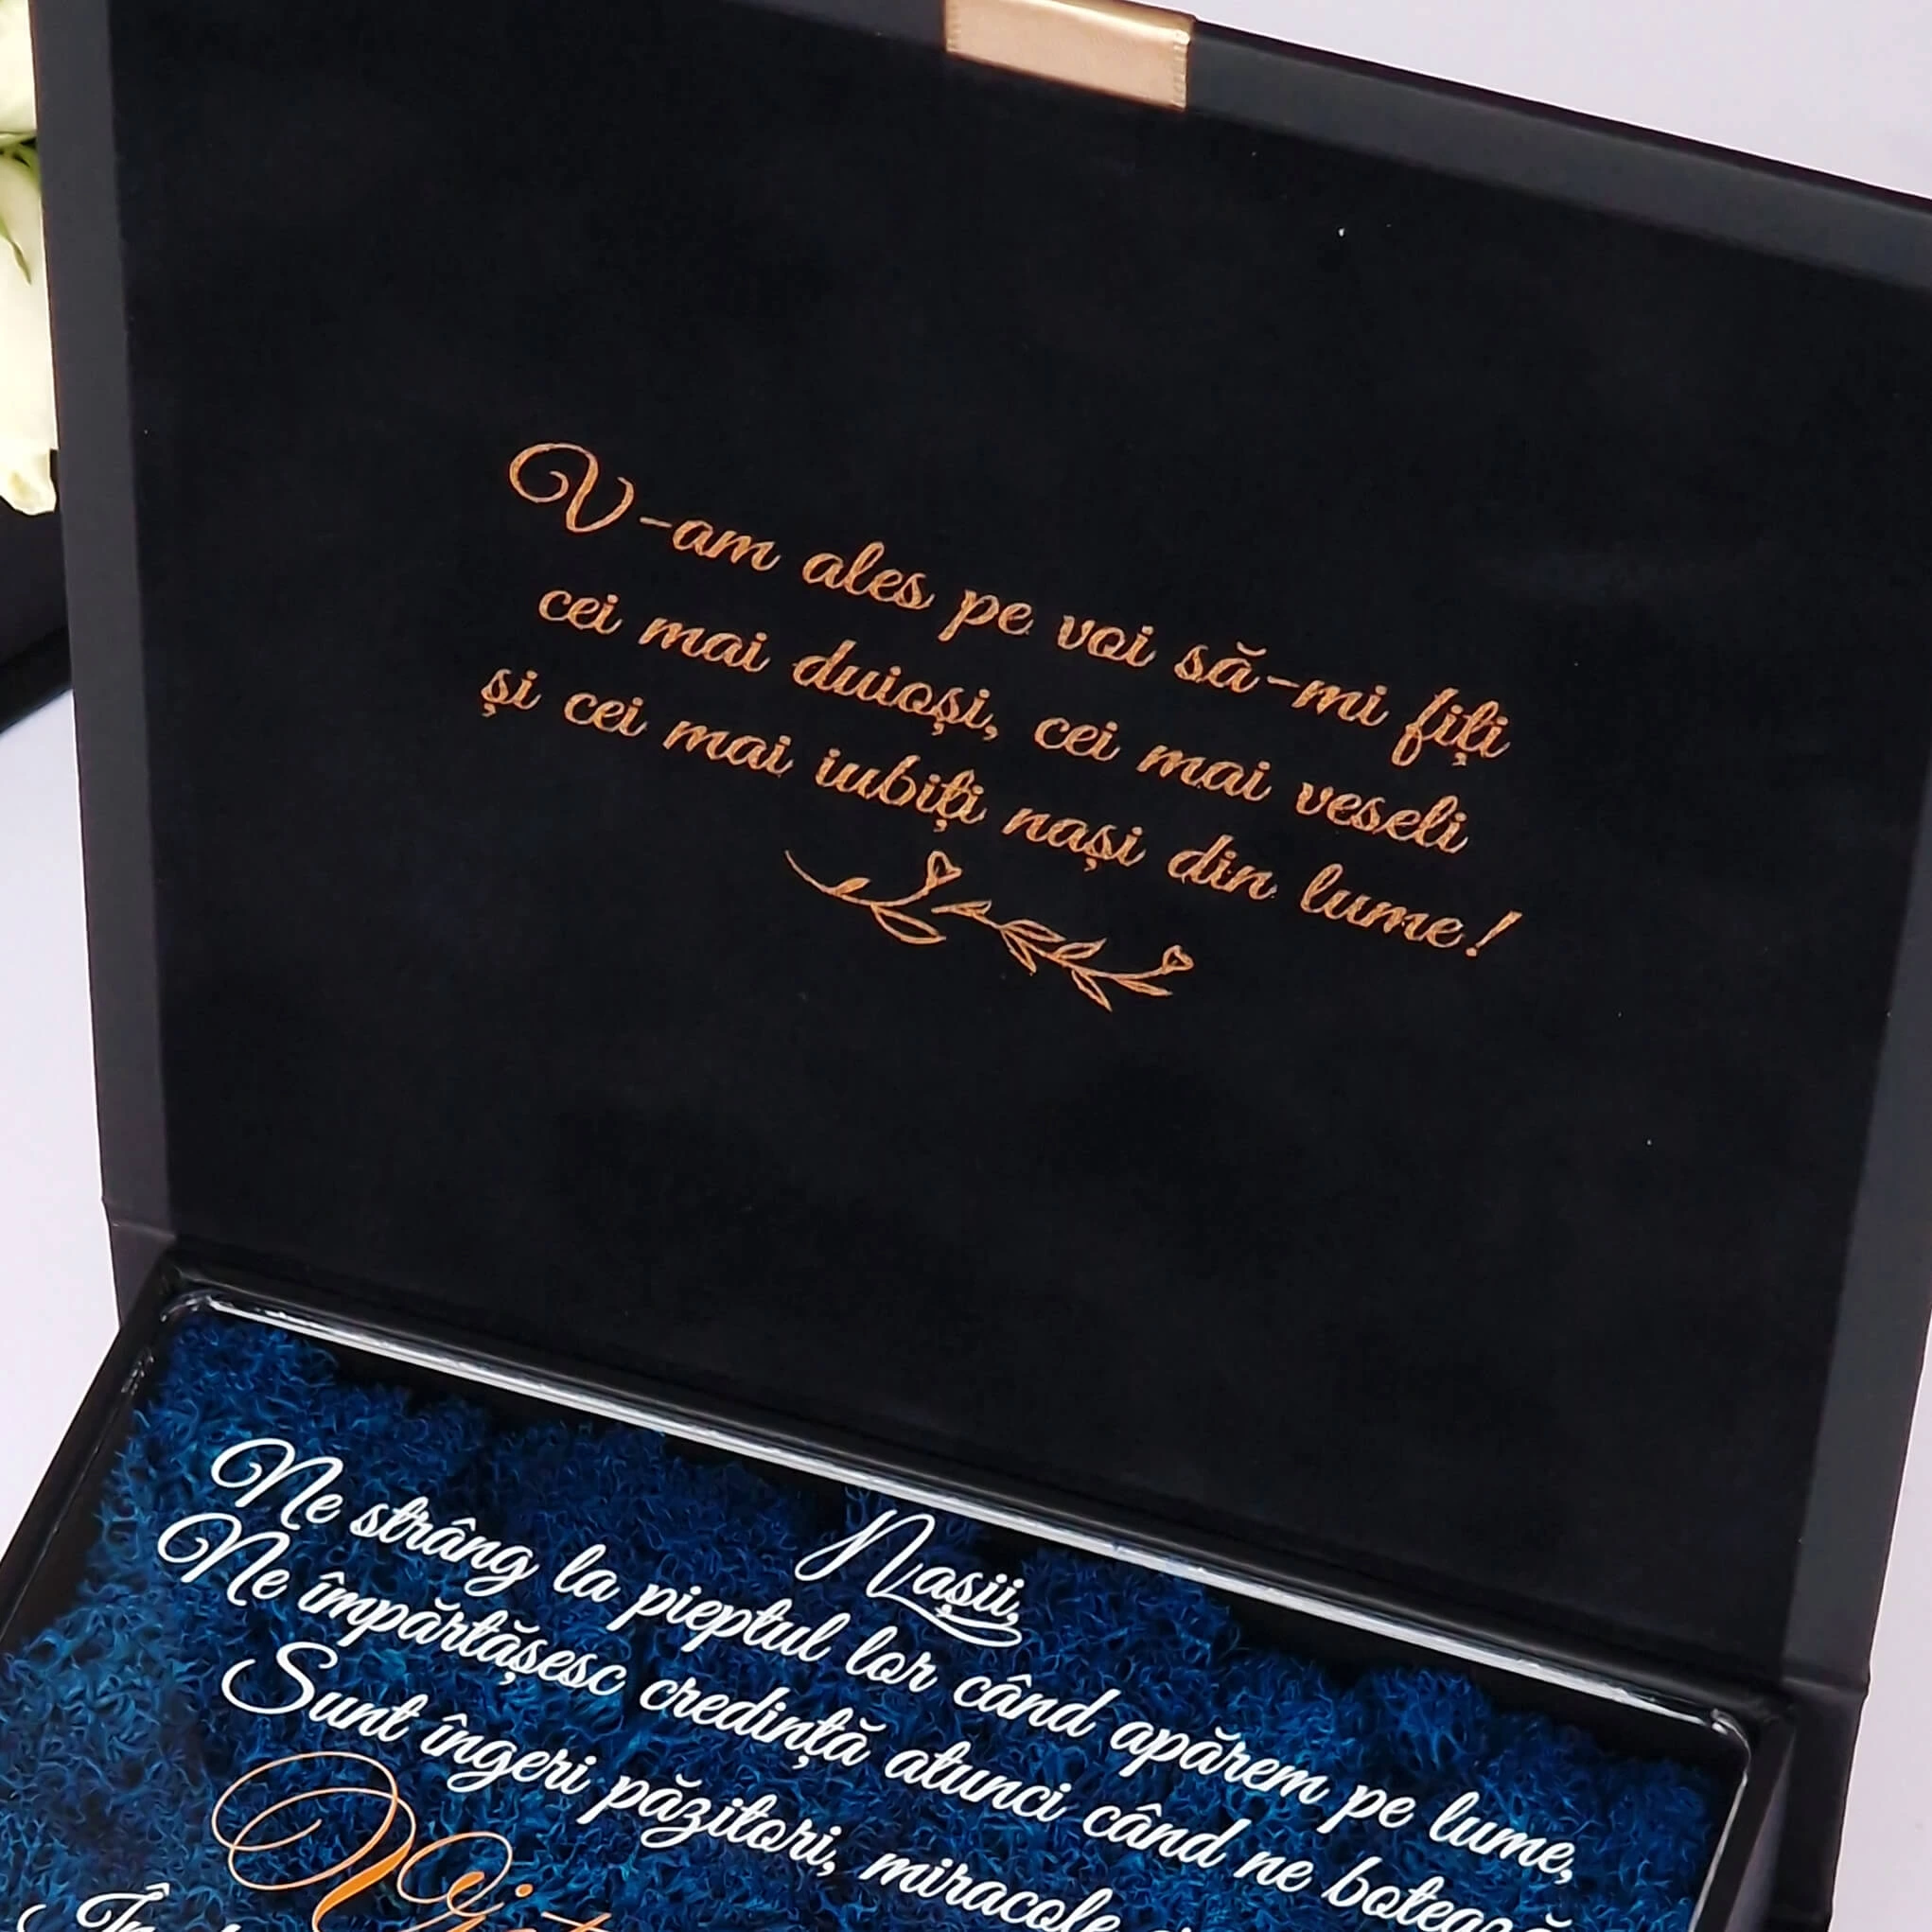 V-am ales pe voi să-mi fiți
cei mai duioși, cei mai veseli
și cei mai iubiți nași din lume!
Nașii,
Ne strâng la pieptul lor când apărem pe lume,
Ne împărtășesc credință atunci când ne botează
Sunt îngeri păzitori, miracole